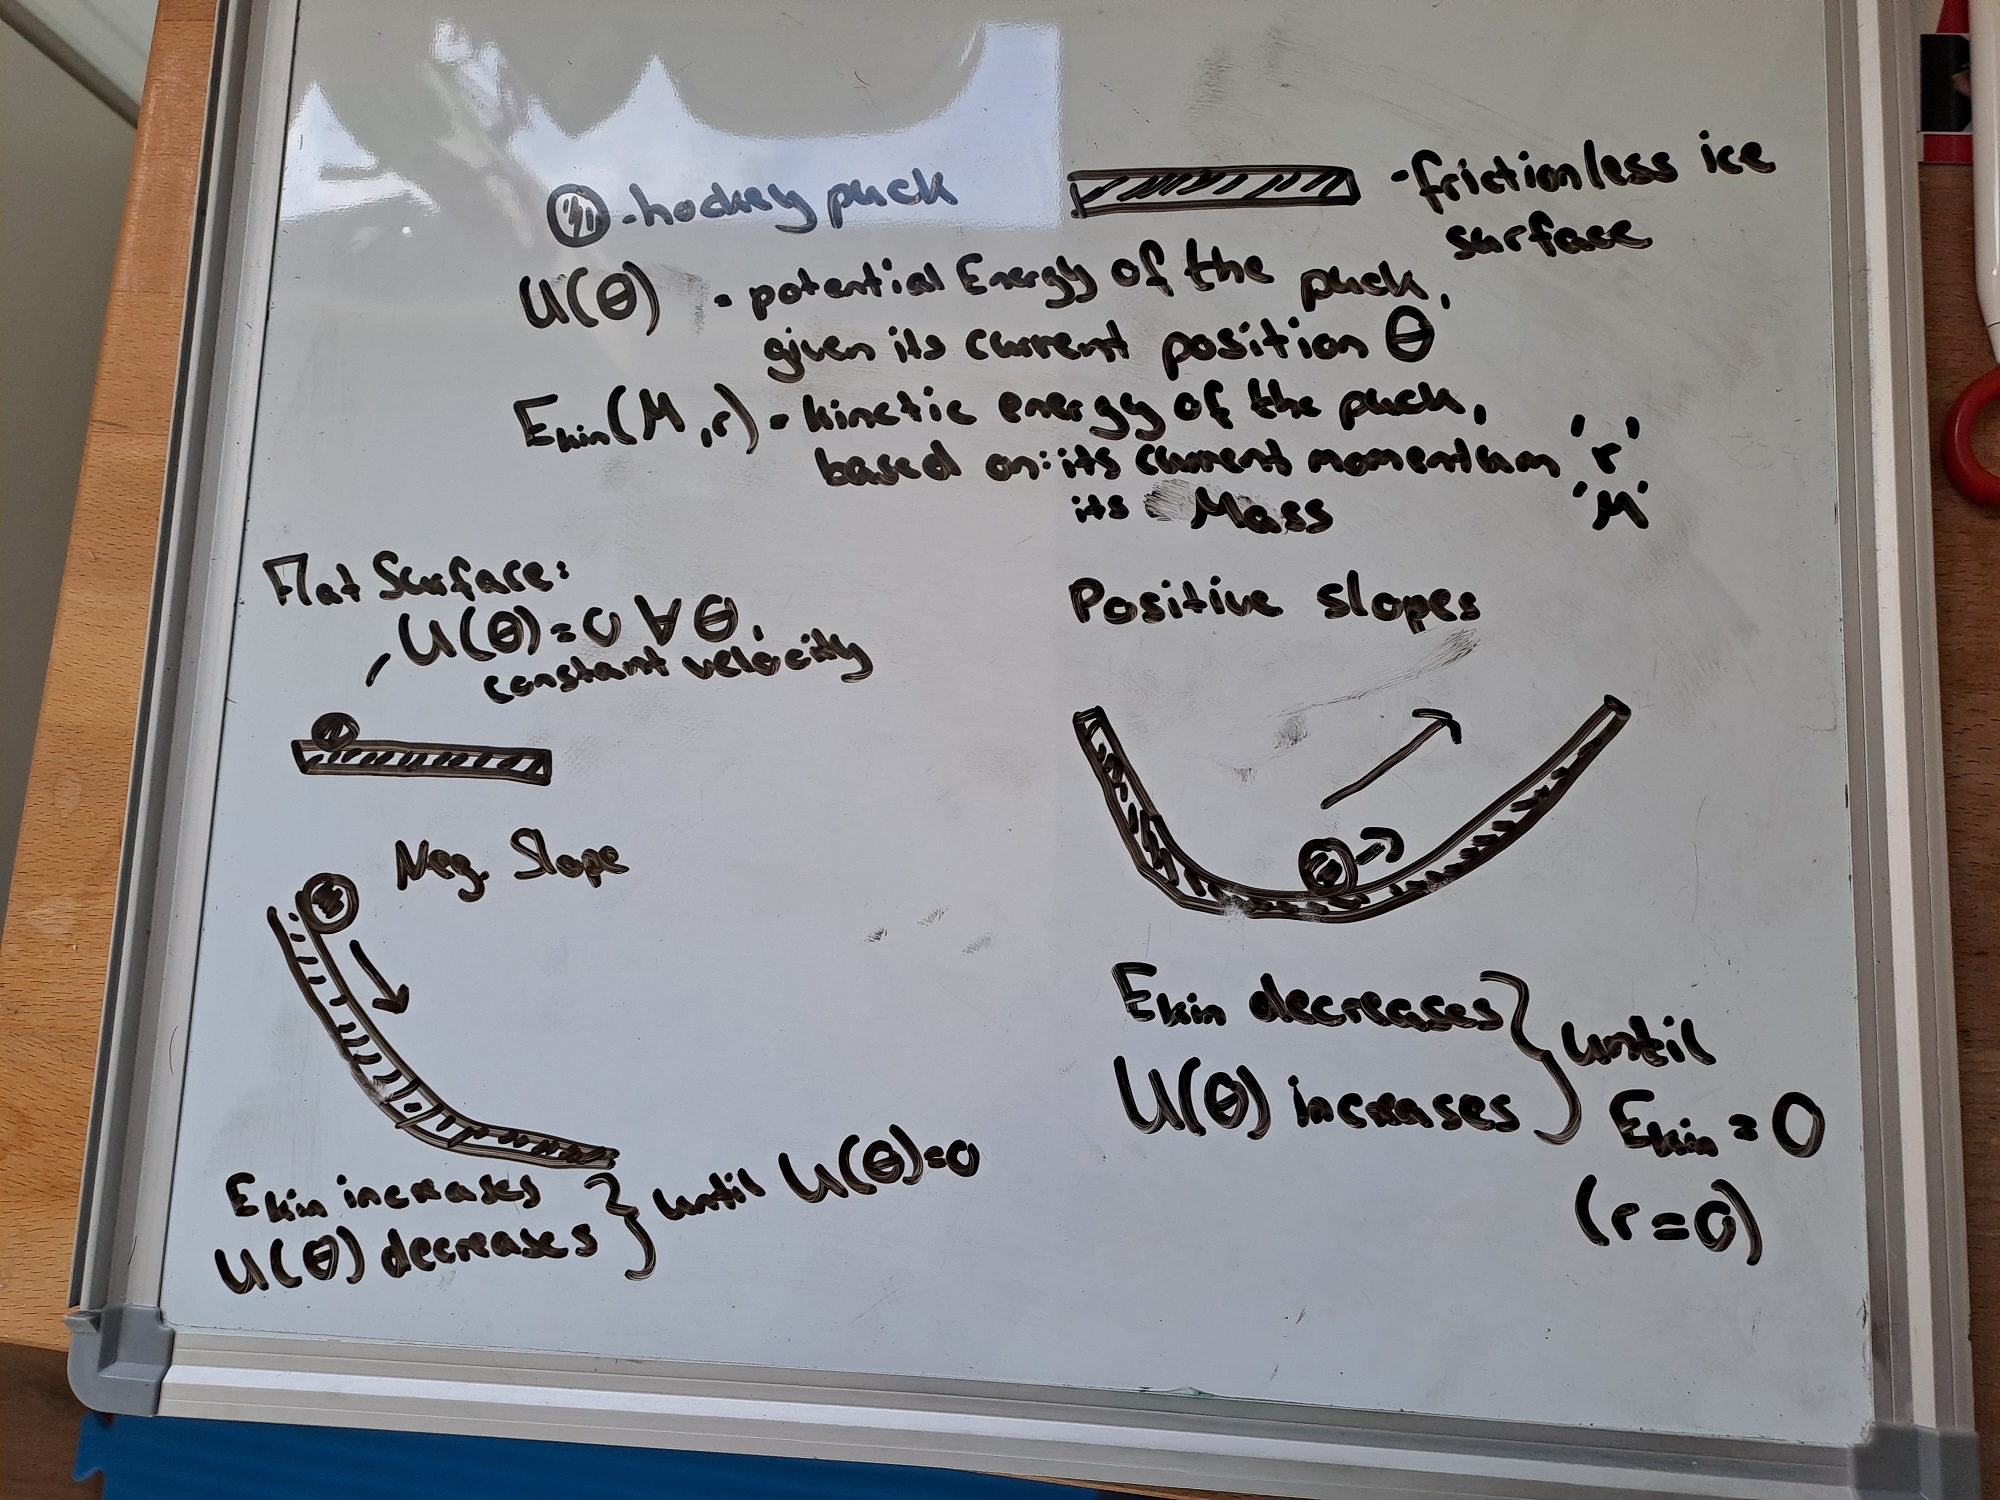 - hockey puck
- frictionless ice
surface
U(θ) - potential Energy of the puck,
given its current position θ
Ekin(M,r) - kinetic energy of the puck,
based on: its current momentum 'r'
its Mass 'M'
Flat Surface:
U(θ)=0 ∀ θ,
constant velocity
Neg. Slope
Ekin increases
U(θ) decreases
} until U(θ)=0
Positive slopes
Ekin decreases
U(θ) increases
} until
Ekin = 0
(r=0)